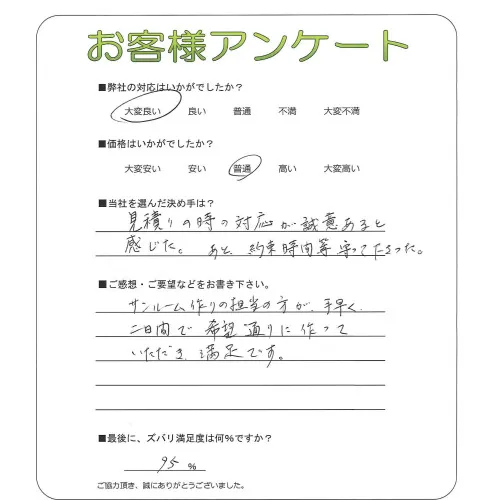 お客様アンケート
■弊社の対応はいかがでしたか？
大変良い 良い 普通 不満 大変不満
■価格はいかがでしたか？
大変安い 安い 普通 高い 大変高い
■当社を選んだ決め手は？
見積りの時の対応が誠意あると
感じた。あと、約束時間等守ってたさった。
■ご感想・ご要望などをお書き下さい。
サンルーム作りの担当の方が、手早く、
二日間で希望通りに作って
いただき、満足です。
■最後に、ズバリ満足度は何％ですか？
95 ％
ご協力頂き、誠にありがとうございました。